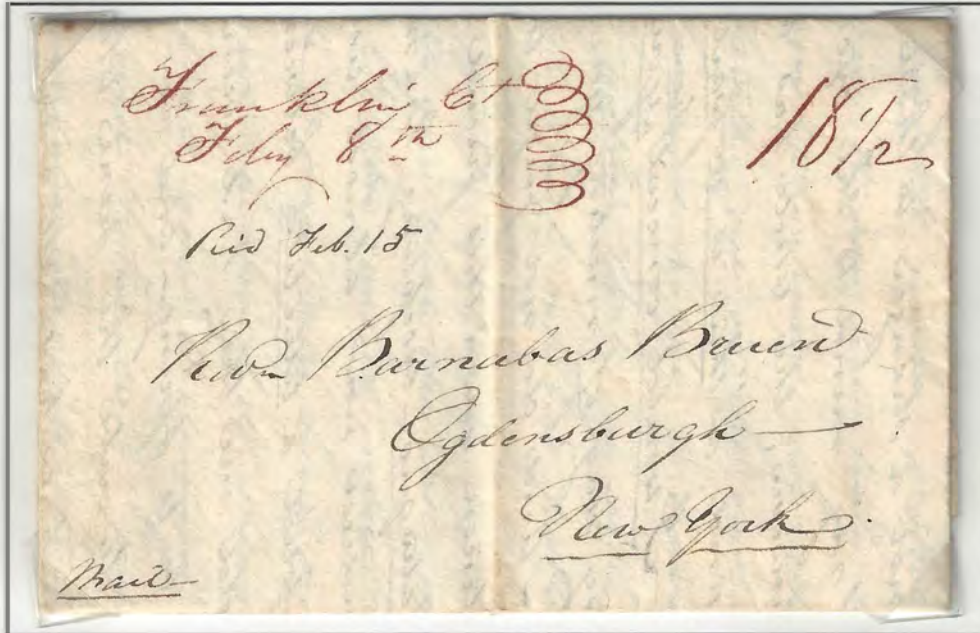 Franklin Ct
Feby 8th
18 1/2
Recd Feb. 15
Barnabas Bruen
Ogdensburgh
New York
Mail